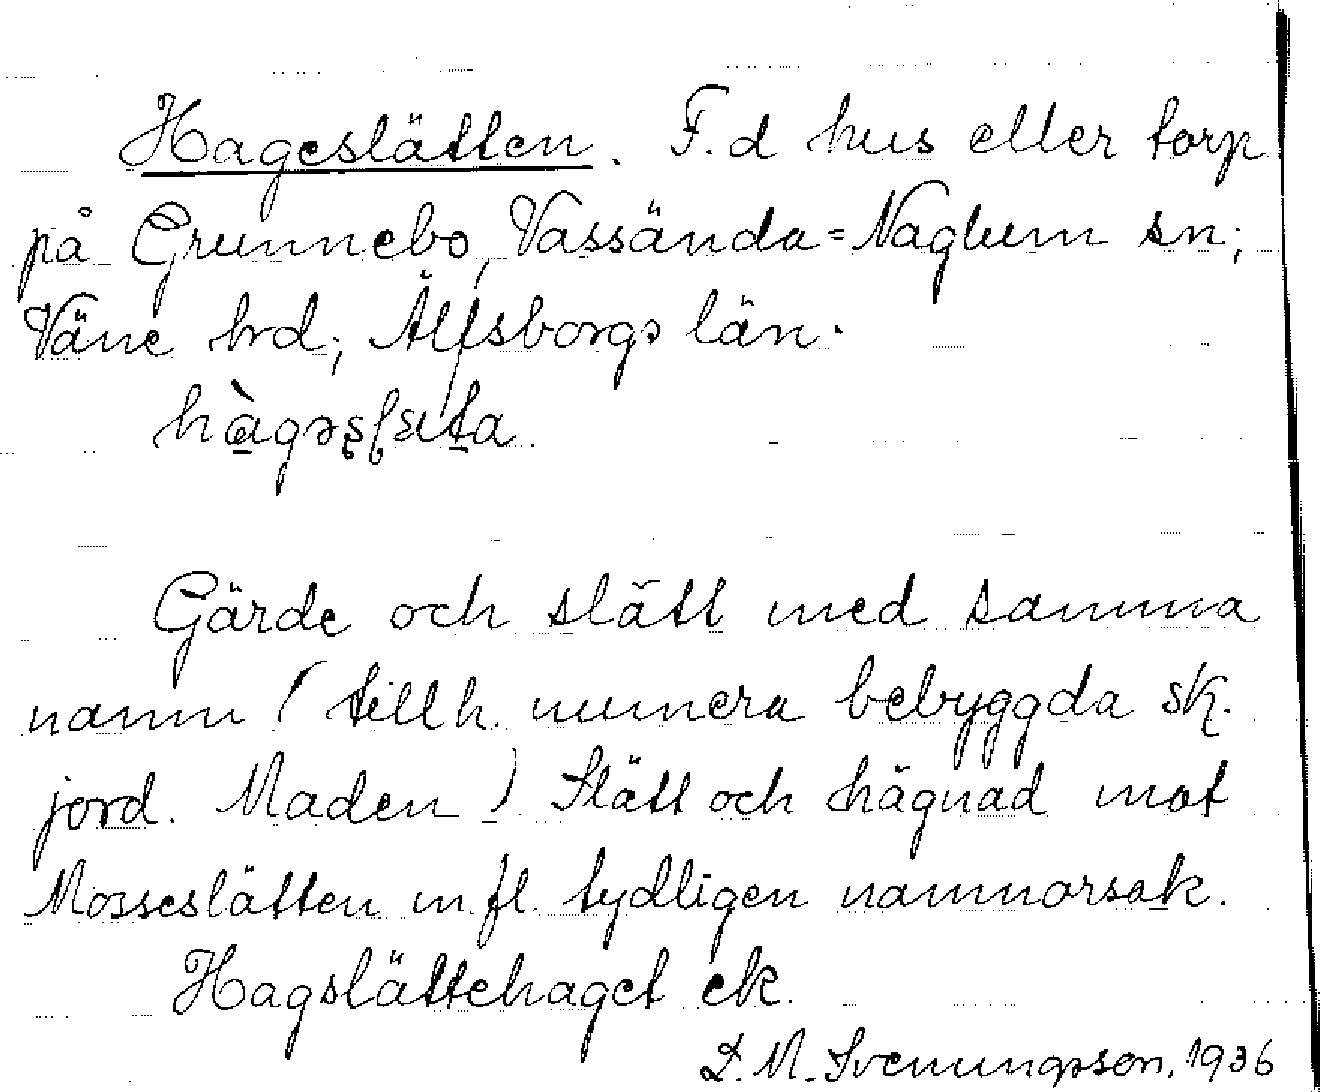 Hageslätten. F.d hus eller torp
på Grunnebo, Vassända=Naglum sn;
Väne hrd; Älfsborgs län.
Gärde och slätt med samma
namn (tillh. numera bebyggda sk.
jord. Maden) Slätt och hägnad mot
Mosseslätten m.fl. tydligen namnorsak.
Hagslättehaget ek.
D. M. Svenungsson, 1936